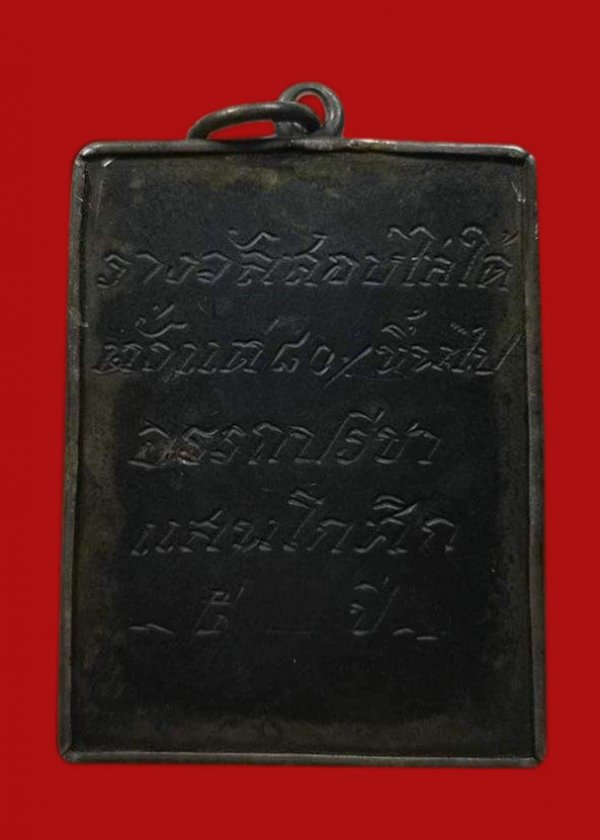 รางวัลสอบไล่ได้
ตั้งแต่ ๘๐/ ขึ้นไป
อรรถปรีชา
แสนโกศิก
ปี